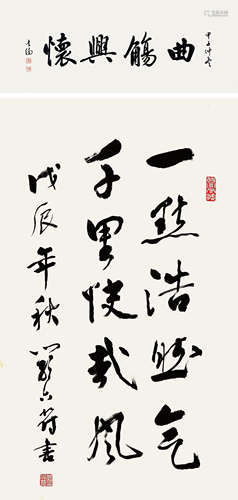 甲子仲冬
曲觴興懷
一點浩然氣
千里快哉風
戊辰年秋
書